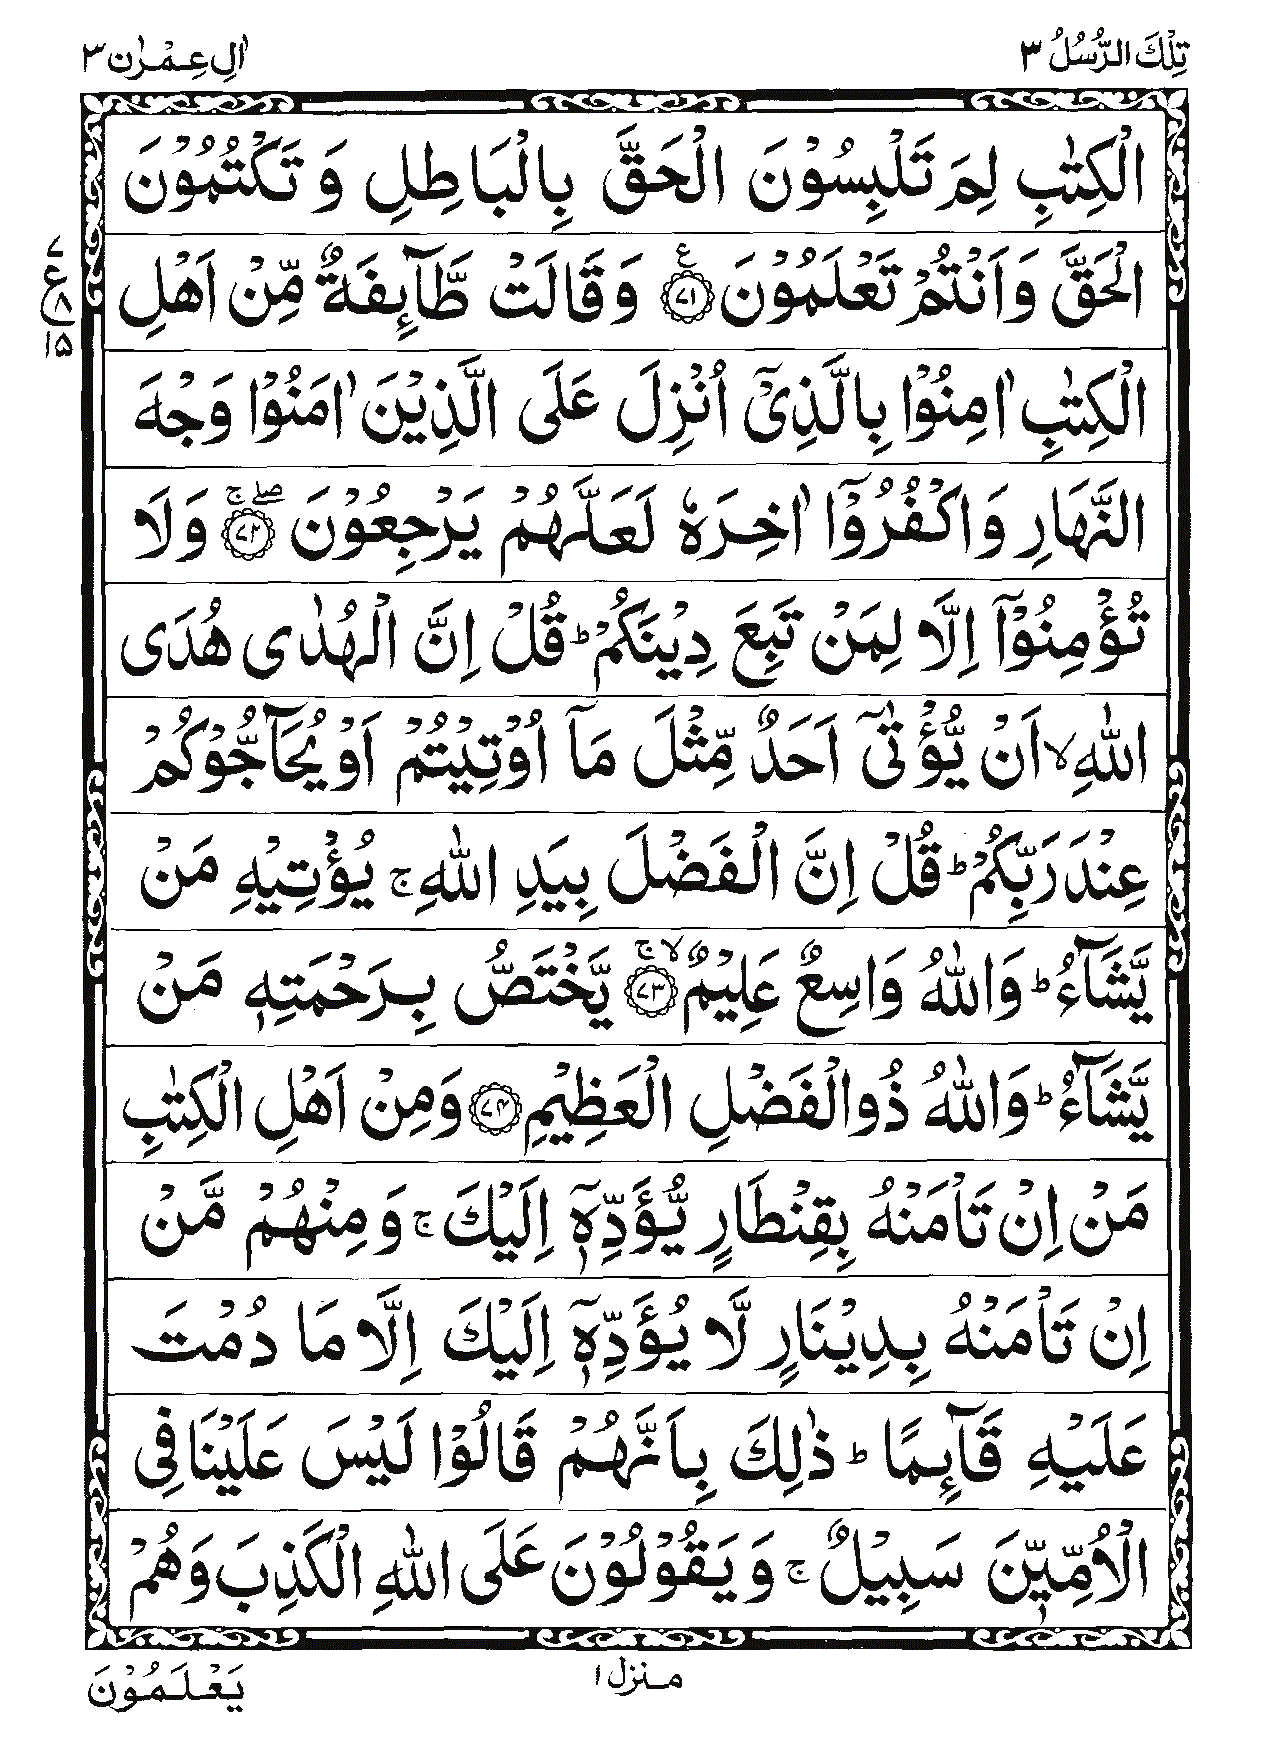 تِلْكَ الرُّسُلُ ٣
اٰلِ عِمْرٰن ٣
الْكِتٰبِ لِمَ تَلْبِسُوْنَ الْحَقَّ بِالْبَاطِلِ وَ تَكْتُمُوْنَ
الْحَقَّ وَ اَنْتُمْ تَعْلَمُوْنَ ۧ ﴿٧١﴾ وَ قَالَتْ طَّآىِٕفَةٌ مِّنْ اَهْلِ
٧ ع ٨ ١٥
الْكِتٰبِ اٰمِنُوْا بِالَّذِیْۤ اُنْزِلَ عَلَى الَّذِیْنَ اٰمَنُوْا وَجْهَ
النَّهَارِ وَ اكْفُرُوْۤا اٰخِرَهٗ لَعَلَّهُمْ یَرْجِعُوْنَ ۖۚ ﴿٧٢﴾ وَ لَا
تُؤْمِنُوْۤا اِلَّا لِمَنْ تَبِعَ دِیْنَكُمْ ؕ قُلْ اِنَّ الْهُدٰى هُدَى
اللّٰهِ ۙ اَنْ یُّؤْتٰۤى اَحَدٌ مِّثْلَ مَاۤ اُوْتِیْتُمْ اَوْ یُحَآجُّوْكُمْ
عِنْدَ رَبِّكُمْ ؕ قُلْ اِنَّ الْفَضْلَ بِیَدِ اللّٰهِ ۚ یُؤْتِیْهِ مَنْ
یَّشَآءُ ؕ وَ اللّٰهُ وَاسِعٌ عَلِیْمٌ ۙۚ ﴿٧٣﴾ یَّخْتَصُّ بِرَحْمَتِهٖ مَنْ
یَّشَآءُ ؕ وَ اللّٰهُ ذُو الْفَضْلِ الْعَظِیْمِ ﴿٧٤﴾ وَ مِنْ اَهْلِ الْكِتٰبِ
مَنْ اِنْ تَاْمَنْهُ بِقِنْطَارٍ یُّؤَدِّهٖۤ اِلَیْكَ ۚ وَ مِنْهُمْ مَّنْ
اِنْ تَاْمَنْهُ بِدِیْنَارٍ لَّا یُؤَدِّهٖۤ اِلَیْكَ اِلَّا مَا دُمْتَ
عَلَیْهِ قَآىِٕمًا ؕ ذٰلِكَ بِاَنَّهُمْ قَالُوْا لَیْسَ عَلَیْنَا فِی
الْاُمِّیّٖنَ سَبِیْلٌ ۚ وَ یَقُوْلُوْنَ عَلَى اللّٰهِ الْكَذِبَ وَ هُمْ
منزل ١
یَعْلَمُوْنَ